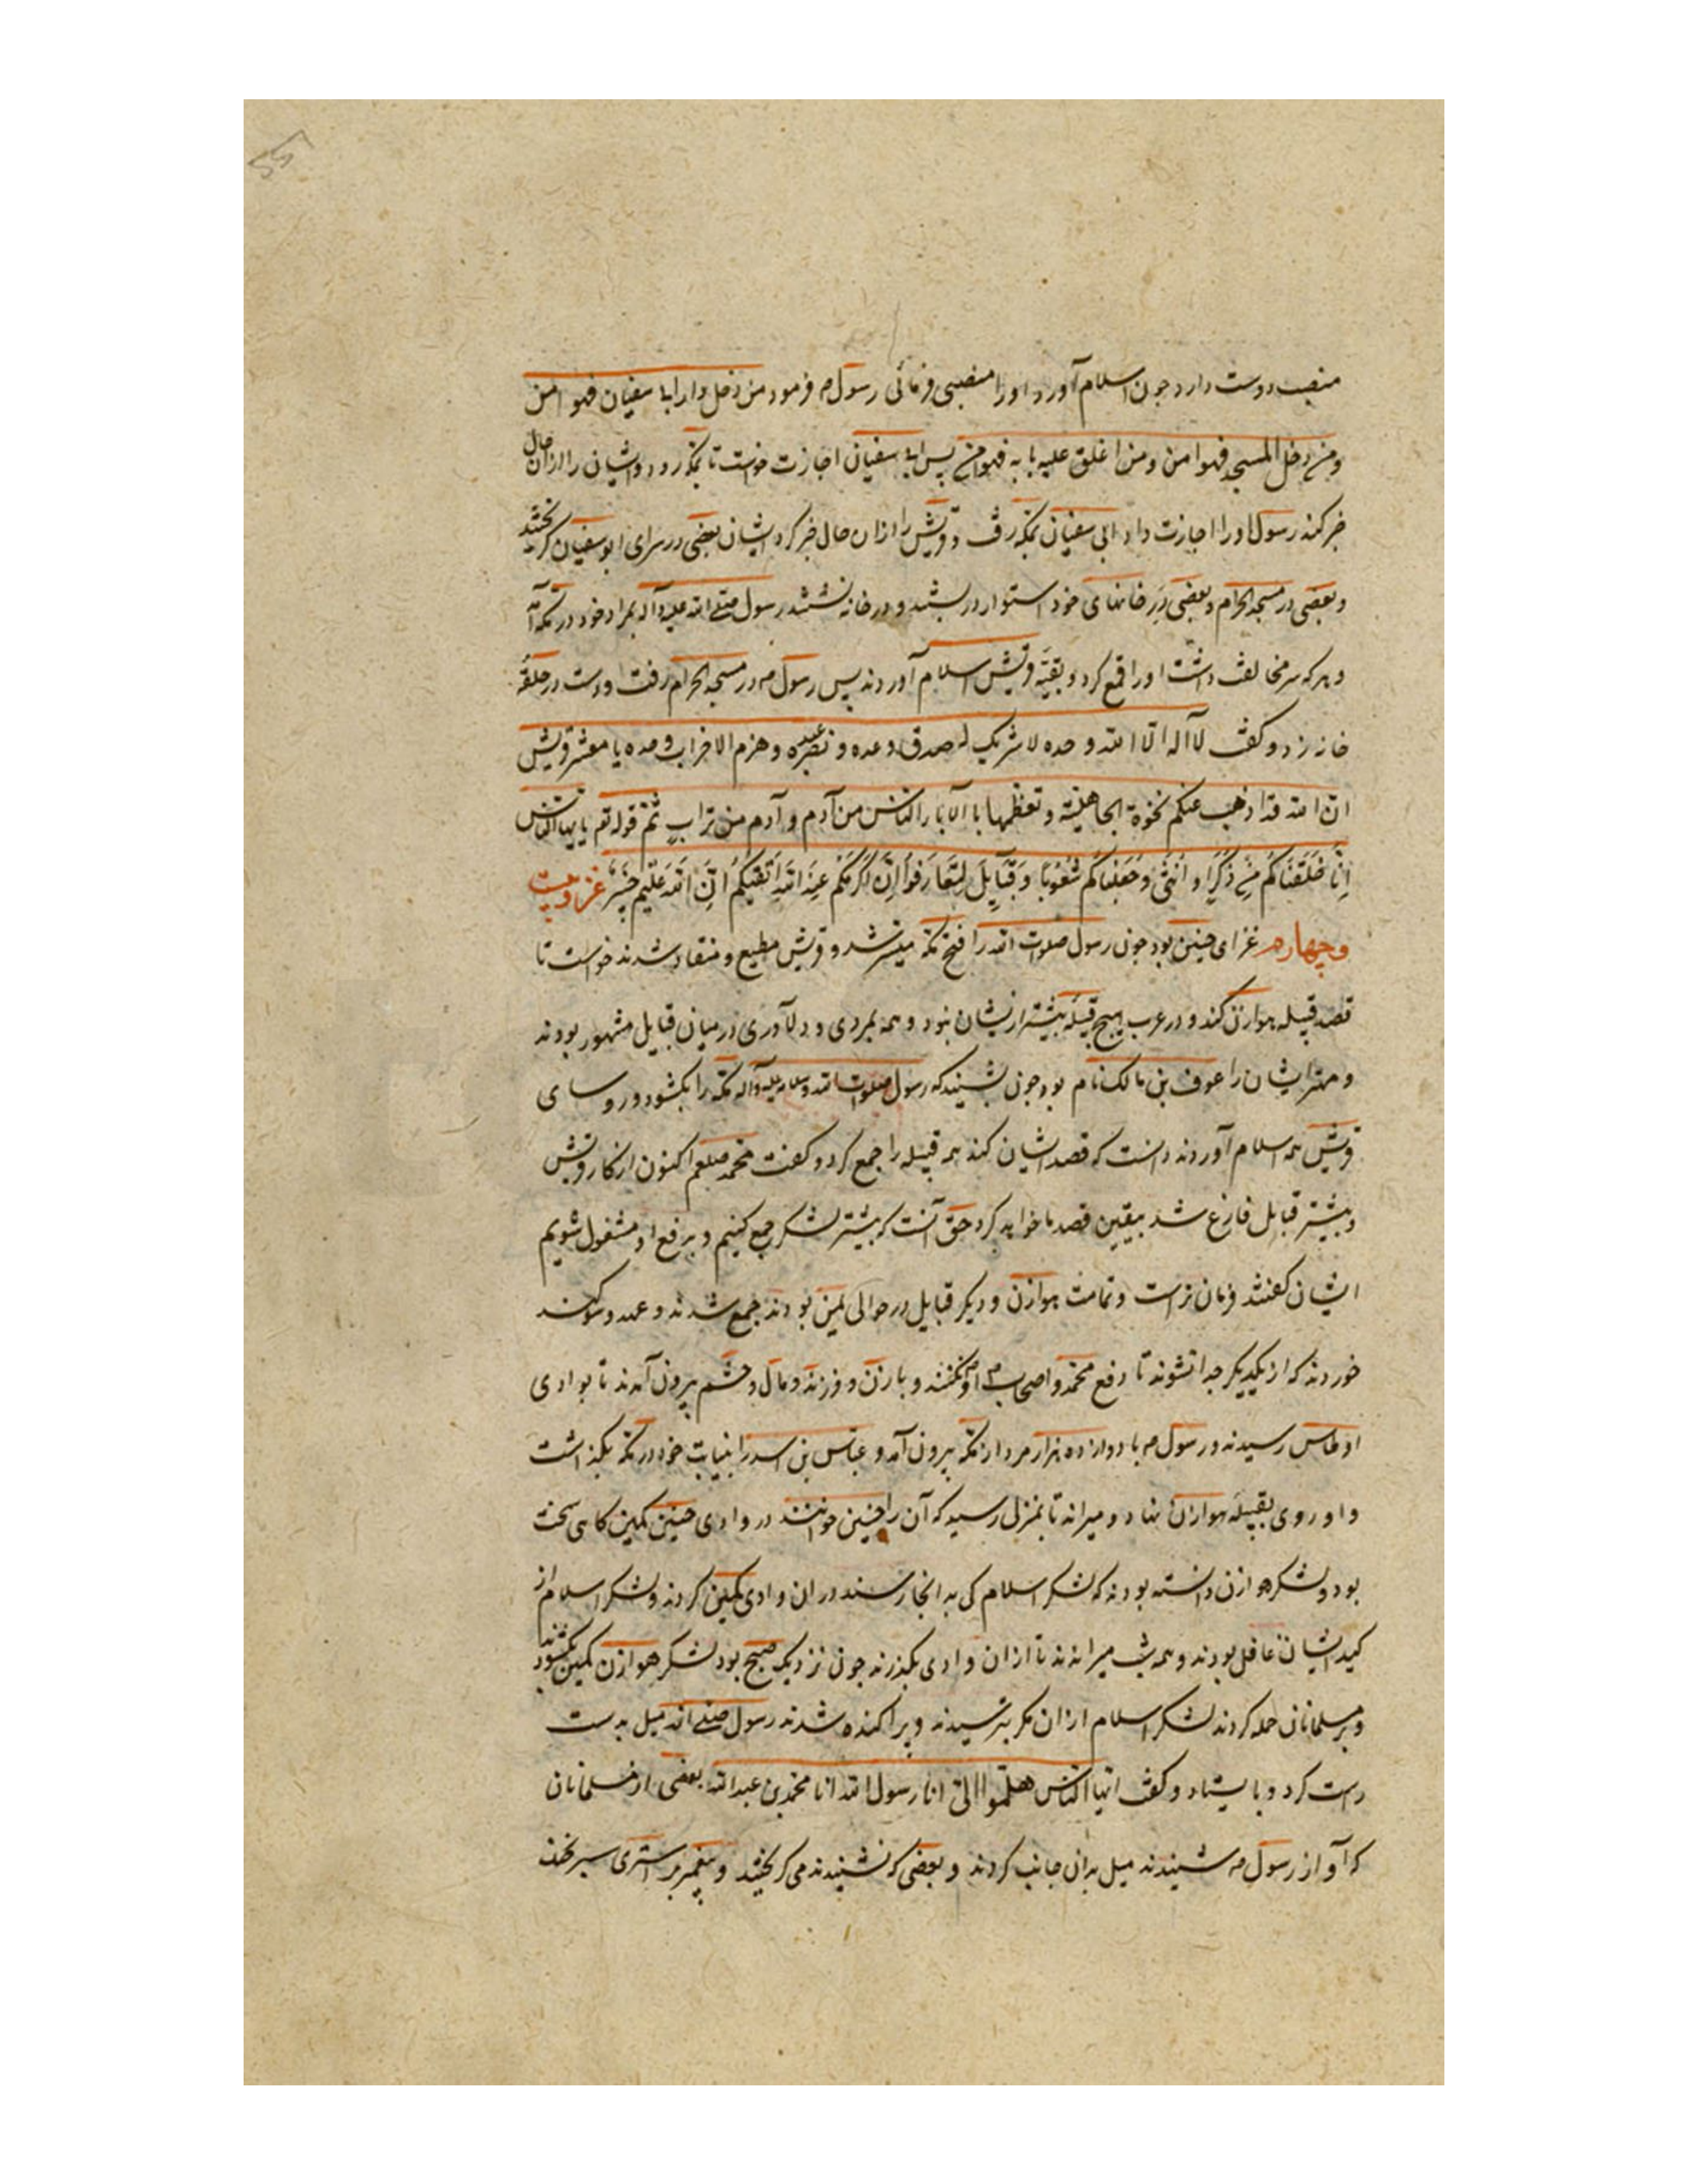 منصب دوست دارد چون اسلام آورد او را منصبی فرمائی رسول صم فرمود من دخل دار ابی سفیان فهو امن
ومن دخل المسجد فهو امن ومن اغلق علیه بابه فهو امن پس ابی سفیان اجازت خواست تا بمکه رود و ایشان را ازان حال
خبر کند رسول او را اجازت داد ابی سفیان بمکه رفت و قریش را ازان حال خبر کرد ایشان بعضی در سرای ابو سفیان گریختند
و بعضی در مسجد الحرام و بعضی در خانهای خود استوار در ببستند و در خانه نشستند رسول صلی الله علیه وآله بمراد خود در مکه آمد
و هرکه سر مخالفت داشت او را قمع کرد و بقیّه قریش اسلام آوردند پس رسول صم در مسجد الحرام رفت و دست در حلقۀ
خانه زد و گفت لا اله الا الله وحده لا شریک له صدق وعده و نصر عبده و هزم الاحزاب وحده یا معشر قریش
انّ الله قد اذهب عنکم نخوة الجاهلیّة و تعظمها بالآباء الناس من آدم و آدم من تراب ثم قوله تعم یا ایها الناس
اِنّا خَلَقناکُم مِن ذَکَرٍ و اُنثی وَجَعَلناکُم شُعُوبًا وَ قَبَایِلَ لِتَعارَفوا اِنَّ اَکرَمَکُم عِندَ اللهِ اَتقیکُم اِنَّ اللهَ عَلیمٌ خَبیر غزو بیست
و چهارم غزای حنین بود چون رسول صلوات الله را فتح مکه میسّر شد و قریش مطیع و منقاد شدند خواست تا
قصد قبیله هوازن کند و در عرب هیچ قبیله بیشتر ازیشان نبود و همه بمردی و دلآوری در میان قبایل مشهور بودند
و مهتر ایشان را عوف بن مالک نام بود چون بشنید که رسول صلوات الله وسلامه علیه وآله مکه را بکشود و روسای
قریش همه اسلام آوردند دانست که قصد ایشان کند همه قبیله را جمع کرد و گفت محمد صلعم اکنون از کار قریش
و بیشتر قبایل فارغ شد بیقین قصد ما خواهد کرد حق آنست که بیشتر لشکر جمع کنیم و برفع او مشغول شویم
ایشان گفتند فرمان تراست و تمامت هوازن و دیگر قبایل در حوالی یمن بودند جمع شدند و عهد و سوکند
خوردند که از یکدیگر جدا نشوند تا دفع محمد و اصحاب او نکنند و با زن و فرزند و مال و حشم بیرون آمدند تا بوادی
اوطاس رسیدند و رسول صم با دوازده هزار مرد از مکه بیرون آمد و عباس بن اسد را بنیابت خود در مکه بگذاشت
و او روی بقبیله هوازن نهاد و میراند تا بمنزل رسید که آن را حنین خوانند در وادی حنین کمین گاهی سخت
بود و لشکر هوازن دانسته بودند که لشکر اسلام کی به انجا رسند در ان وادی کمین کردند و لشکر اسلام از
کید ایشان غافل بودند و همه شب میراندند تا ازان وادی بگذرند چون نزدیک صبح بود لشکر هوازن کمین بکشودند
و بر مسلمانان حمله کردند لشکر اسلام ازان مکر بترسیدند و پراکنده شدند رسول صلی الله میل به دست
راست کرد و بایستاد و گفت ایها الناس هلمّوا الیّ انا رسول الله انا محمد بن عبدالله بعضی از مسلمانان
که آواز رسول صم شنیدند میل بدان جانب کردند و بعضی که نشنیدند می گریختند و پیغمبر بر استری سبز خنک